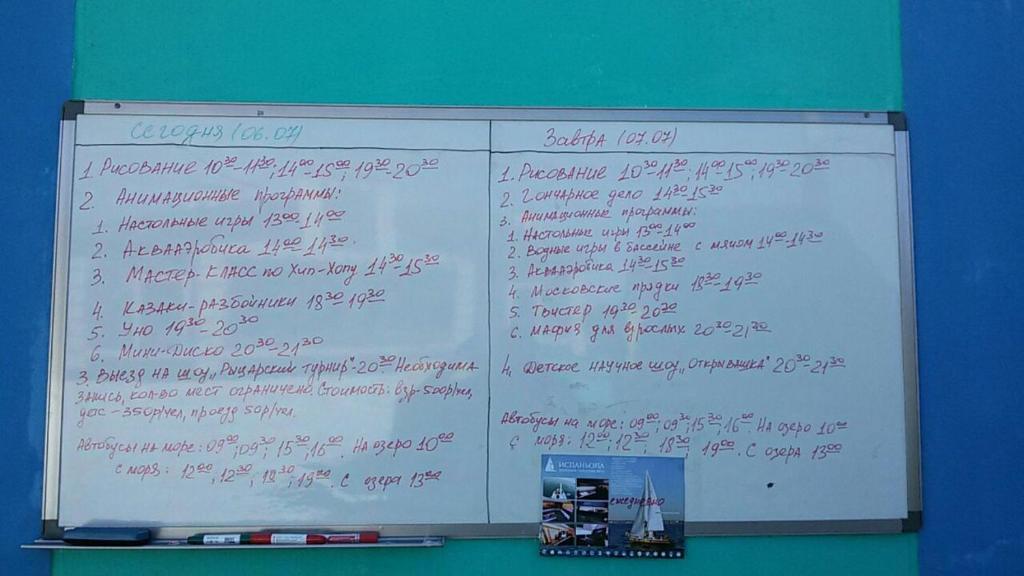 Сегодня (06.07)
1. Рисование 10³⁰-11³⁰; 14⁰⁰-15⁰⁰; 19³⁰-20³⁰
2. Анимационные программы:
1. Настольные игры 13⁰⁰-14⁰⁰
2. Аквааэробика 14⁰⁰-14³⁰.
3. Мастер-класс по Хип-Хопу 14³⁰-15³⁰
4. Казаки-разбойники 18³⁰-19³⁰
5. Уно 19³⁰-20³⁰
6. Мини-Диско 20³⁰-21³⁰
3. Выезд на шоу „Рыцарский турнир"-20³⁰ Необходима
запись, кол-во мест ограничено. Стоимость: взр-500р/чел,
дос-350р/чел, проезд 50р/чел.
Автобусы на море: 09⁰⁰; 09³⁰; 15³⁰; 16⁰⁰. На озеро 10⁰⁰
с моря: 12⁰⁰; 12³⁰; 18³⁰; 19⁰⁰. С озера 13⁰⁰
Завтра (07.07)
1. Рисование 10³⁰-11³⁰; 14⁰⁰-15⁰⁰; 19³⁰-20³⁰
2. Гончарное дело 14³⁰-15³⁰
3. Анимационные программы:
1. Настольные игры 13⁰⁰-14⁰⁰
2. Водные игры в бассейне с мячом 14⁰⁰-14³⁰
3. Аквааэробика 14³⁰-15³⁰
4. Московские прядки 18³⁰-19³⁰
5. Твистер 19³⁰-20³⁰
6. Мафия для взрослых 20³⁰-21³⁰
4. Детское научное шоу „Открывашка" 20³⁰-21³⁰
Автобусы на море: 09⁰⁰; 09³⁰; 15³⁰; 16⁰⁰. На озеро 10⁰⁰
с моря: 12⁰⁰; 12³⁰; 18³⁰; 19⁰⁰. С озера 13⁰⁰
ИСПАНЬОЛА
ежедневно